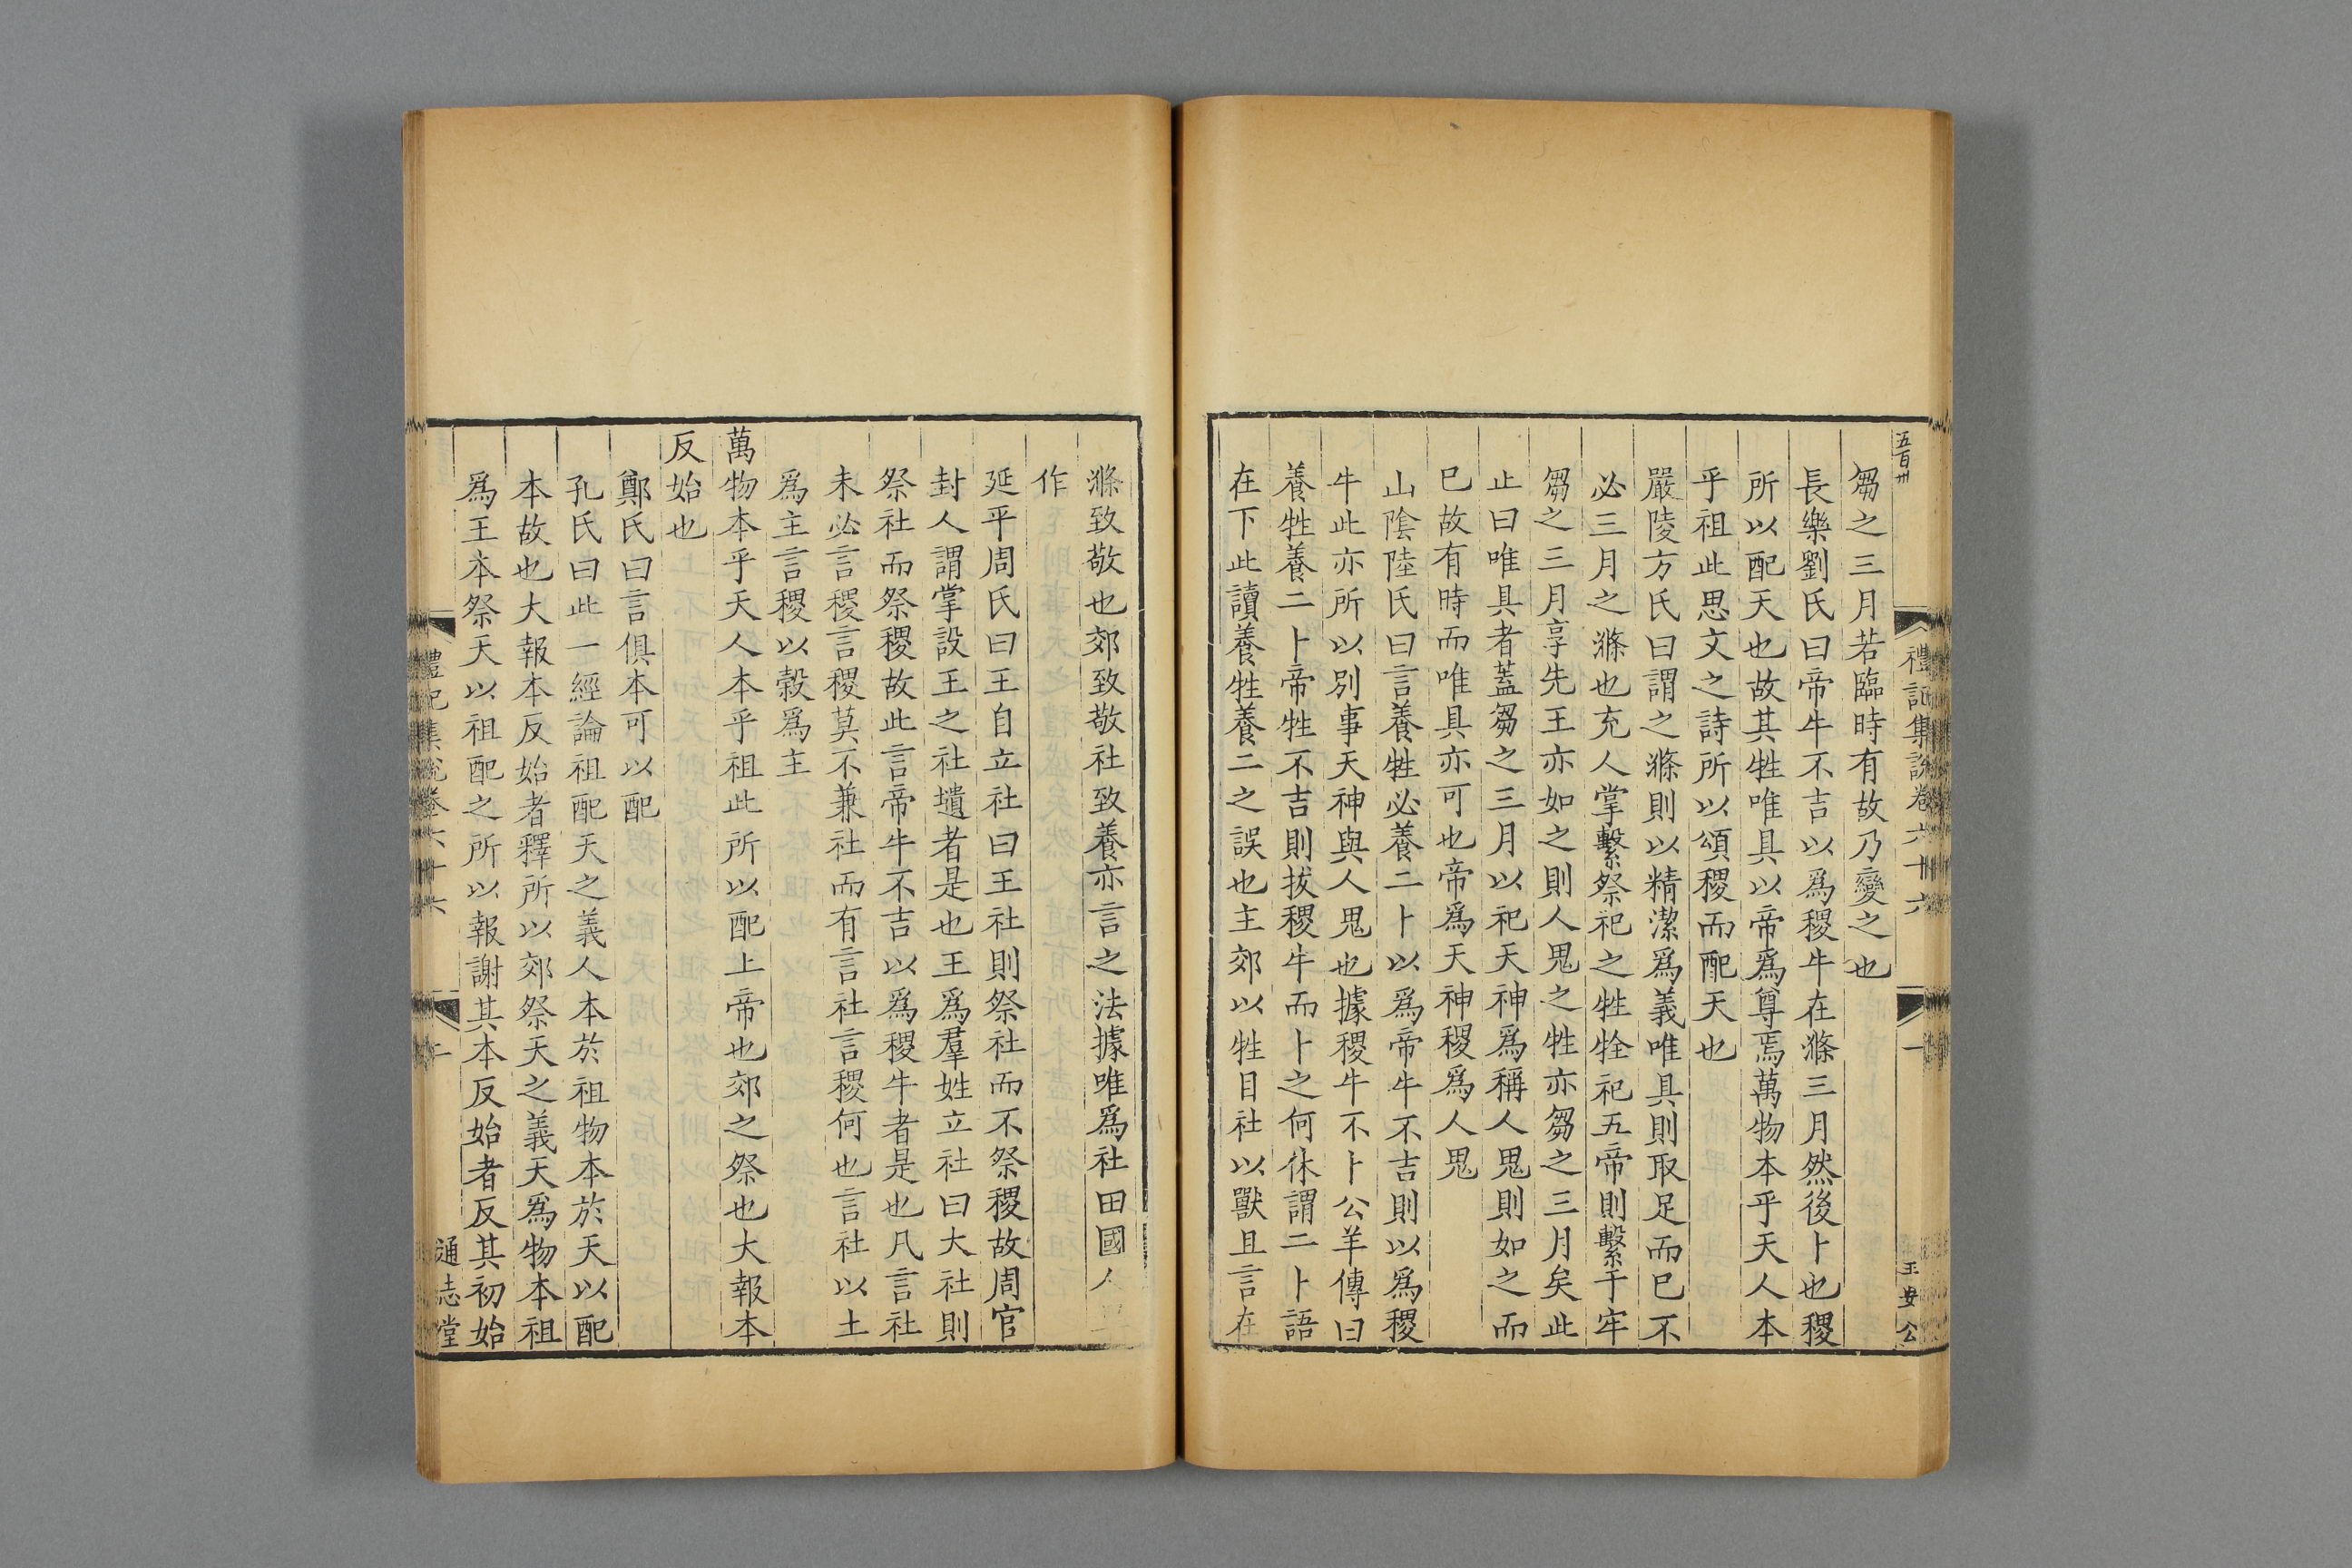 五百卅
禮記集說卷六十六
一
王安公
芻之三月若臨時有故乃變之也
長樂劉氏曰帝牛不吉以爲稷牛在滌三月然後卜也稷
所以配天也故其牲唯具以帝爲尊焉萬物本乎天人本
乎祖此思文之詩所以頌稷而配天也
嚴陵方氏曰謂之滌則以精潔爲義唯具則取足而已不
必三月之滌也充人掌繫祭祀之牲牷祀五帝則繫于牢
芻之三月享先王亦如之則人鬼之牲亦芻之三月矣此
止曰唯具者蓋芻之三月以祀天神爲稱人鬼則如之而
已故有時而唯具亦可也帝爲天神稷爲人鬼
山陰陸氏曰言養牲必養二卜以爲帝牛不吉則以爲稷
牛此亦所以別事天神與人鬼也據稷牛不卜公羊傳曰
養牲養二卜帝牲不吉則扳稷牛而卜之何休謂二卜語
在下此讀養牲養二之誤也主郊以牲目社以獸且言在
滌致敬也郊致敬社致養亦言之法據唯爲社田國人
作
延平周氏曰王自立社曰王社則祭社而不祭稷故周官
封人謂掌設王之社壝者是也王爲羣姓立社曰大社則
祭社而祭稷故此言帝牛不吉以爲稷牛者是也凡言社
未必言稷言稷莫不兼社而有言社言稷何也言社以土
爲主言稷以穀爲主
萬物本乎天人本乎祖此所以配上帝也郊之祭也大報本
反始也
鄭氏曰言俱本可以配
孔氏曰此一經論祖配天之義人本於祖物本於天以配
本故也大報本反始者釋所以郊祭天之義天爲物本祖
爲王本祭天以祖配之所以報謝其本反始者反其初始
禮記集說卷六十六
二
通志堂